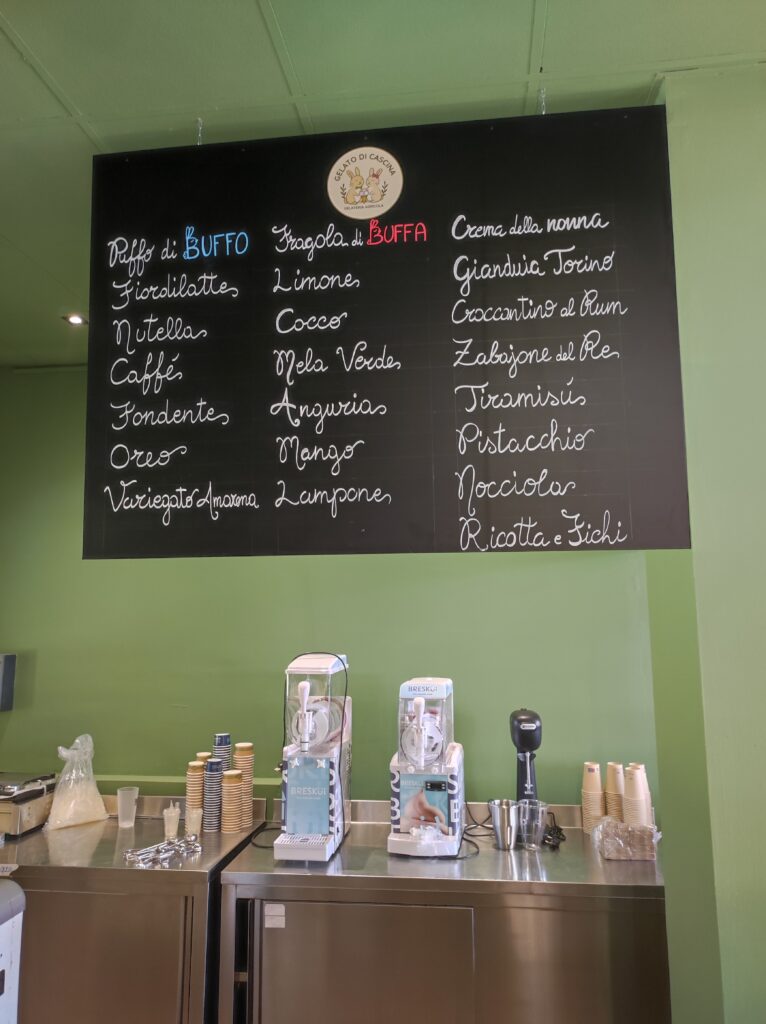 GELATO DI CASCINA
GELATERIA AGRICOLA
Puffo di BUFFO
Fiordilatte
Nutella
Caffé
Fondente
Oreo
Variegato Amarena
Fragola di BUFFA
Limone
Cocco
Mela Verde
Anguria
Mango
Lampone
Crema della nonna
Gianduia Torino
Croccantino al Rum
Zabajone del Re
Tiramisú
Pistacchio
Nocciola
Ricotta e Fichi
BRESKUI
BRESKUI